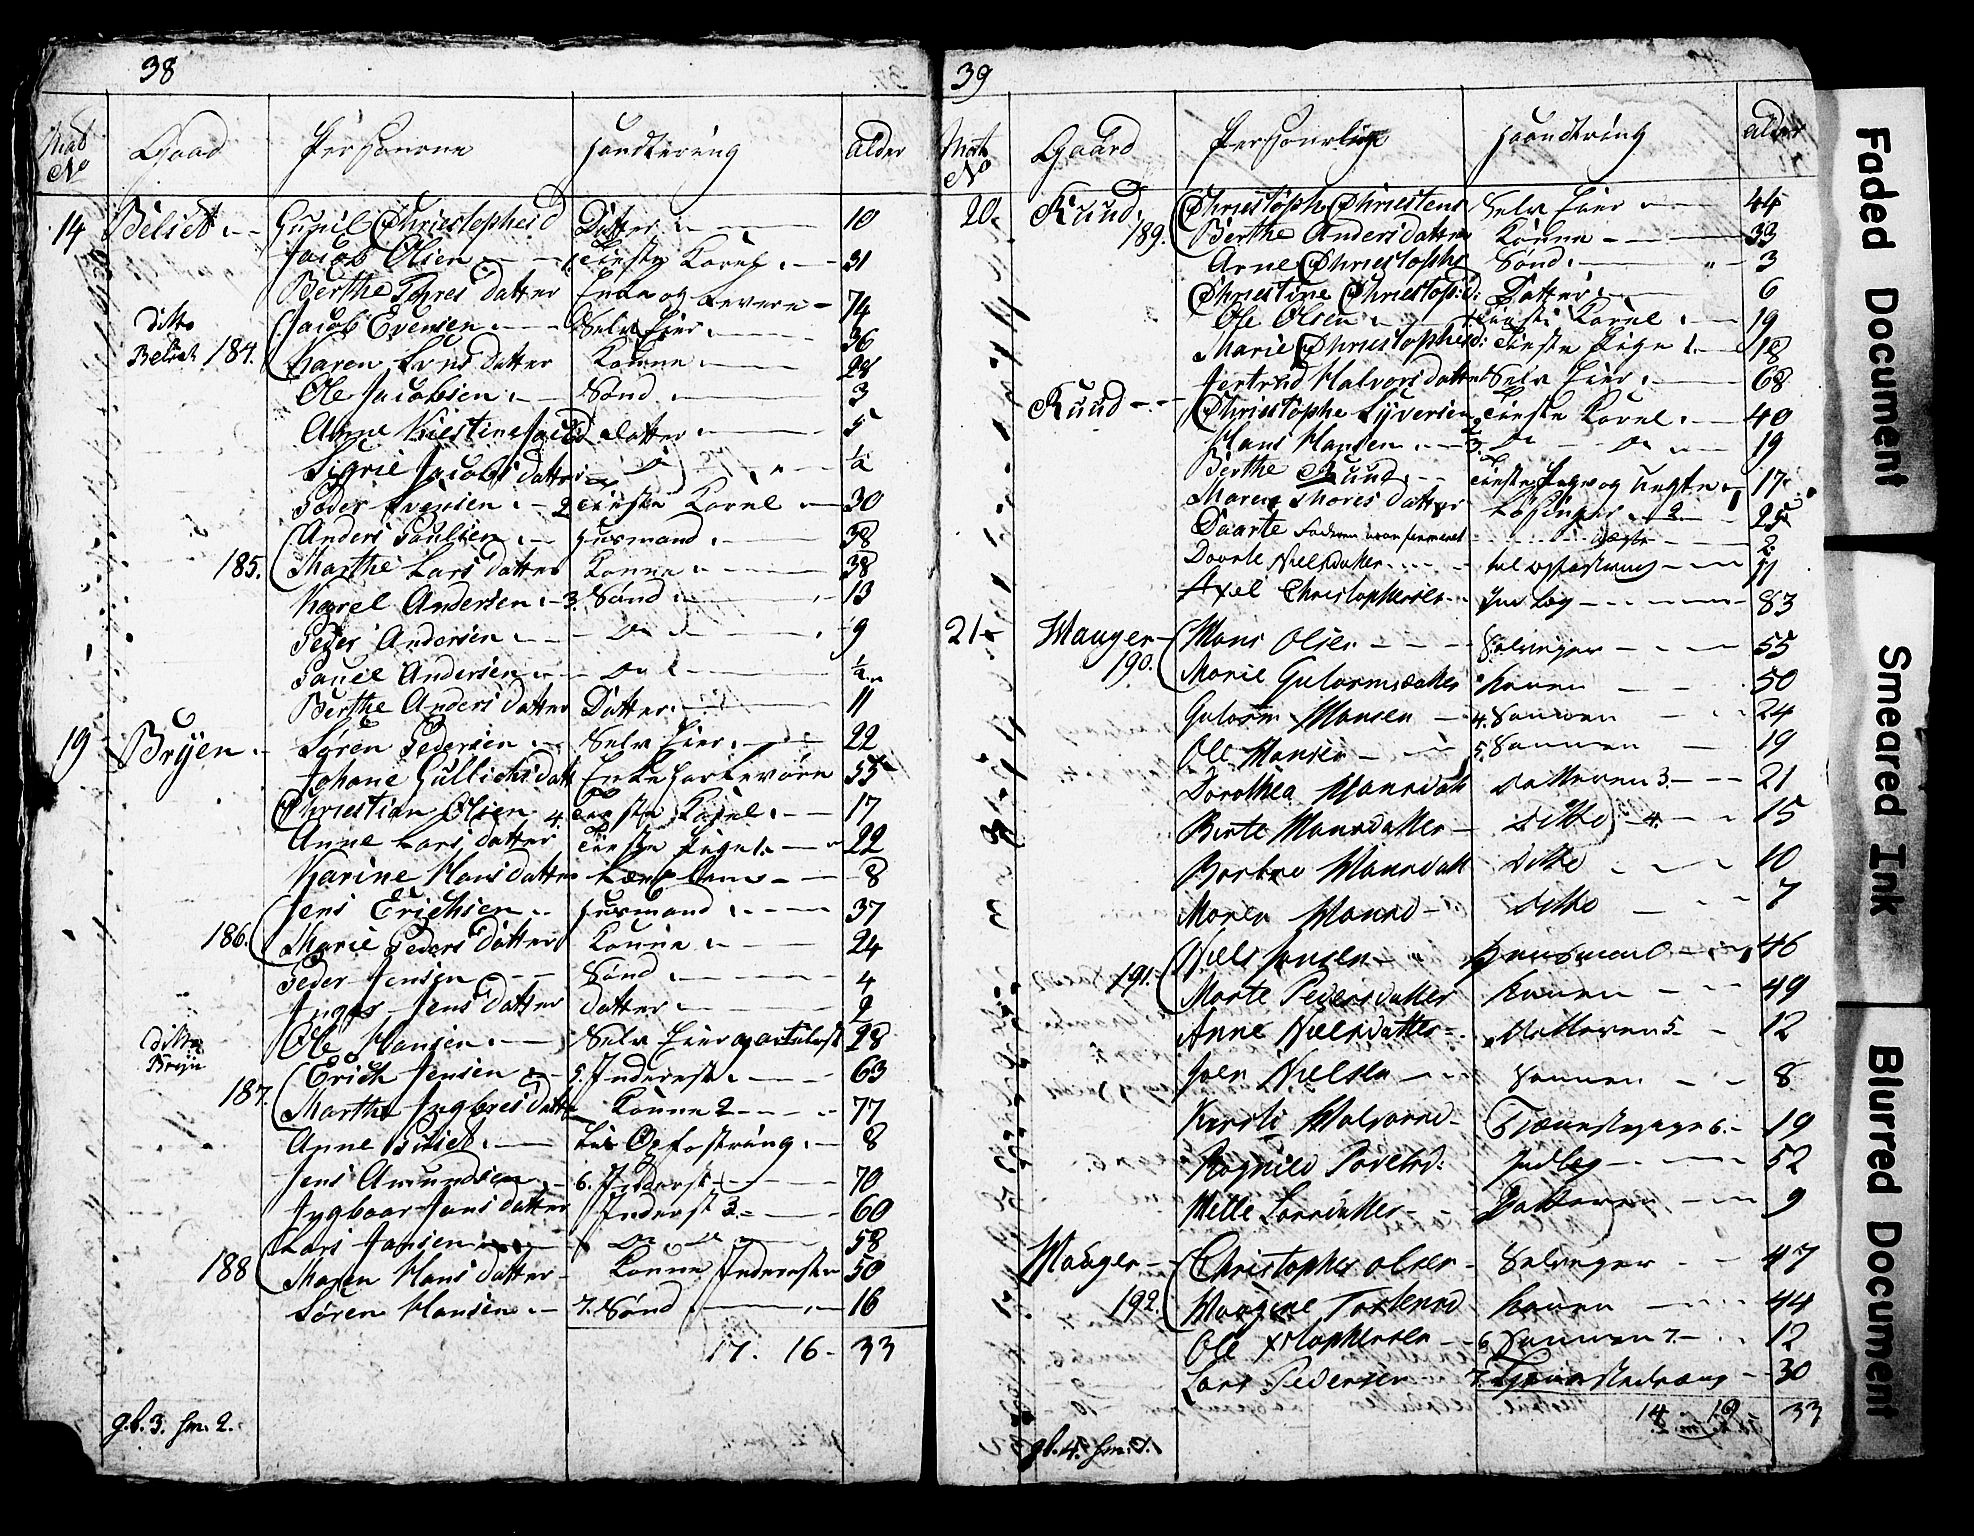 38
Mat No Gaard Personerne Handtering Alder
14 Belset Gunil Christophersd Datter 10
Jacob Olsen 1. tienste Karel 31
Berthe Tores datter Enke og Levere 74
ditto Belset 184. Jacob Evensen Selv Eier 36
Karen Lars datter Konne 28
Ole Jacobsen Sønd 3
Anne Kiestine Jacobsd datter 5
Sigrie Jacobs datter do ½
Peder Evensen 2 tienste Karel 30
Anders Poulsen Husmand 38
185. Marthe Lars datter Konne 38
Karel Andersen 3. Sønd 13
Peder Andersen do 9
Pouel Andersen do ½
Berthe Anders datter Datter 11
19 Bryen Søren Pedersen Selv Eier 22
Johane Gullichs datt Enke 55
Christian Olsen 4. tienste Karel 17
Anne Lars datter tienste Pige 1. 22
Karine Hans datter 8
186. Jens Erichsen Husmand 37
Marie Peders Datter Konne 24
Peder Jensen Sønd 4
Inger Jens datter datter 2
ditto Bryn Ole Hansen Selv Eier 28
187. Erich Jensen 5. Inderst 63
Marthe Ingbres datter Konne 2 77
Anne til Opfostring 8
Jens Amundsen 6. Inderst 70
Ingboar Jans datter Inderst 3. 60
188 Lars Jansen do do 58
Maren Hans datter Konne Inderster 50
Søren Hansen 7. Sønd 16
17. 16 - 33
gb. 3. hm. 2.
39
Mat No Gaard Personerlige Haandtring alder
20. Ruud 189. Christoph Christens Selv Eier 44
Berthe Anders datter Konne 33
Arne Christophe Sønd 3
Christine Christop:d: Datter 6
Ole Olsen 1. tienste Karel 19
Marie Christophersd: tienste Pige 1. 18
Jertrud Halvors datter Selv Eier 68
Ruud Christophe Syversen 2 tienste Karel 40
Hans Hansen 3. do do 19
Berthe Ruud tienste Pige og 17
Maren Thores datter Løsinger 2 25
Daarte 2
Doorte Nielsdatter til opfostring 11
Axel Christophersen Ind Læg 83
21 Mauger 190. Hans Olsen Selveyer 55
Marie Gulormsdatter konen 50
Gulorm Hansen 4. Sonnen 24
Ole Hansen 5. Sonnen 19
Dorothea Hansdatt datteren 3. 21
Berte Hansdatter ditto 4. 15
Barbro Hansdatt ditto 10
Maren Hansd ditto 7
191. Niels Jensen Huusmand 46
Marte Pedersdatter konen 49
Anne Nielsdatter datteren 5. 12
Joen Nielsen Sonnen 8
Kersti Halvorsd Tieenstepige 6. 19
Ragnild Povelsd: Indleg 52
Mette Larsdatter Datteren 9
Mauger 192. Christopher Olsen Selveyer 47
Maagne Torstensd konen 44
Ole Xstophersen 6 Sonnen 7 12
Lars Pedersen 7. Tienestedreng 30
14 19 33
gb. 4. hm. 1.
Faded Document
Smeared Ink
Blurred Document